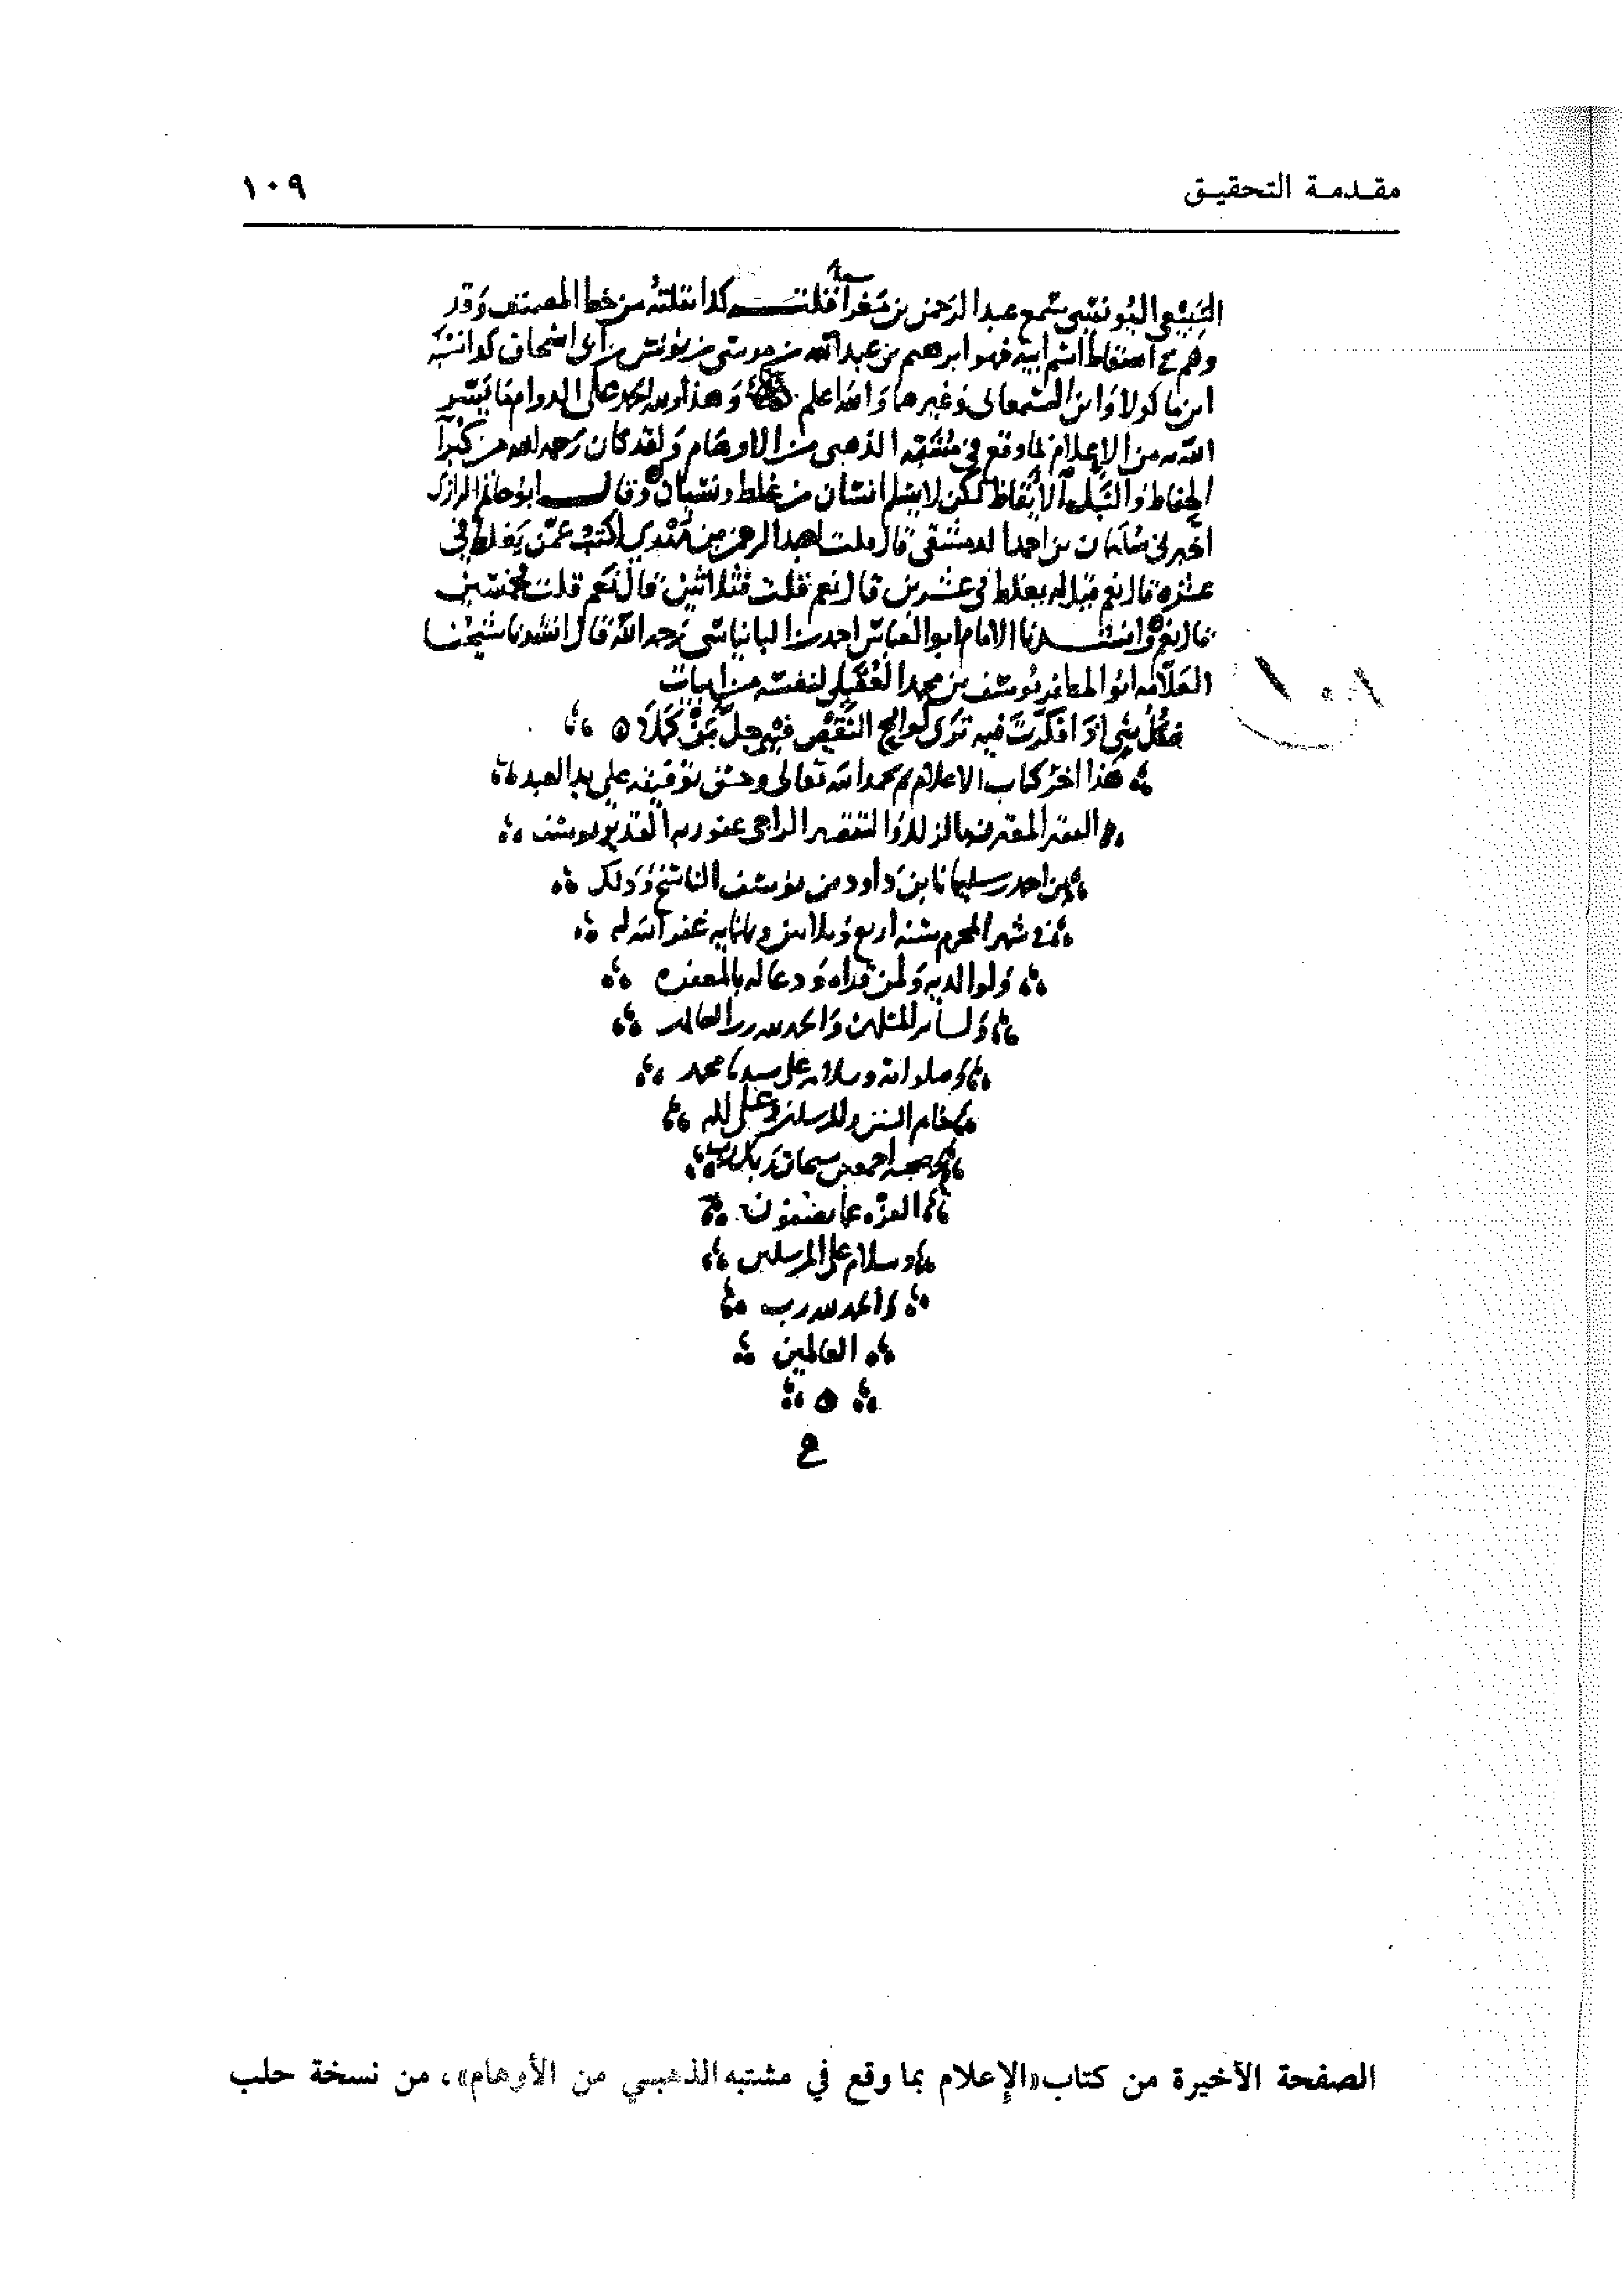 مقدمة التحقيق
١٠٩
السبيعي اليونسي سمع عبد الرحمن بن مغرا قلت كذا نقلته من خط المصنف وقد
وهم في اسقاط اسم ابيه فهو ابرهيم بن عبد الله بن موسى بن يونس بن أبي اسحاق كذا نسبه
ابن ماكولا وابن السمعاني وغيرهما والله اعلم وهذا ولله الحمد على الدوام ما يسر
الله من الإعلام بما وقع في مشتبه الذهبي من الاوهام ولقد كان رحمه الله من كبرآ
الحفاظ والنبلاء الأيقاظ لكن لا يسلم انسان من غلط ونسيان وقال ابو حاتم الرازي
اخبرني سليمان بن احمد الدمشقي قال قلت لعبد الرحمن بن مهدي اكتب عمن يغلط في
عشرة قال نعم قيل له يغلط في عشرين قال نعم قلت فثلاثين قال نعم قلت فخمسين
قال نعم وانشدنا الامام ابو العباس احمد بن البانياسي رحمه الله قال انشدنا شيخنا
العلامه ابو المظفر يوسف بن محمد العقيلي لنفسه من ابيات
فكل شي اذا فكرت فيه ترى لوايح النقص فيه جل من كملا
هذا اخر كتاب الاعلام بحمد الله تعالى وحسن توفيقه على يد العبد
الفقير المعترف بالزلل والتقصير الراجي عفو ربه القدير يوسف
بن احمد بن سليمان بن داود بن يوسف الناسخ وذلك
في شهر المحرم سنه أربع وثلاثين وثمانمايه غفر الله له
ولوالديه ولمن قراه ودعا له بالمغفره
ولسائر المسلمين والحمد لله رب العالمين
وصلوات الله وسلامه على سيدنا محمد
خاتم النبيين والمرسلين وعلى اله
وصحبه اجمعين سبحان ربك رب
العزه عما يصفون
وسلام على المرسلين
والحمد لله رب
العالمين
الصفحة الأخيرة من كتاب «الإعلام بما وقع في مشتبه الذهبي من الأوهام»، من نسخة حلب